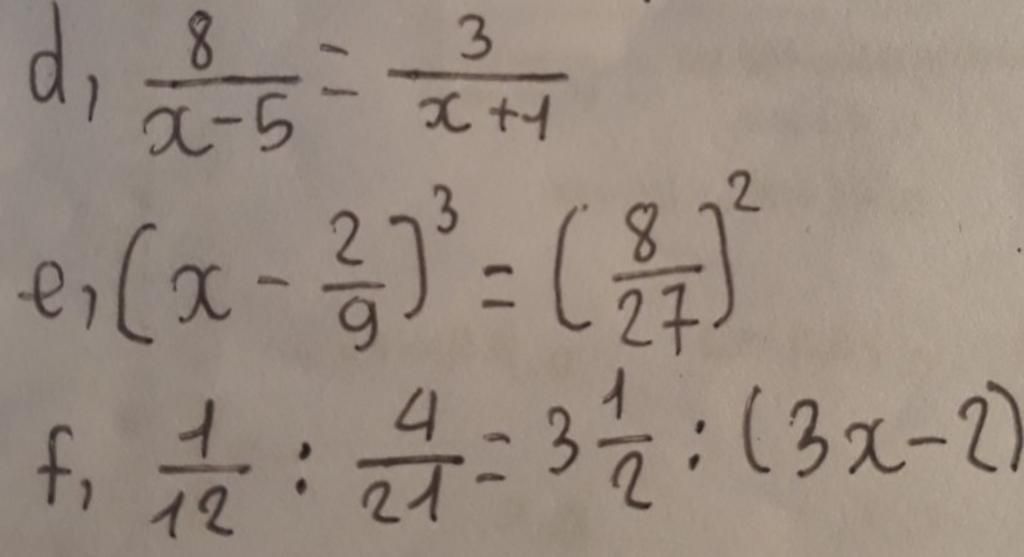 d, 8/(x-5) = 3/(x+1)
e, (x - 2/9)³ = (8/27)²
f, 1/12 : 4/21 = 3 1/2 : (3x-2)